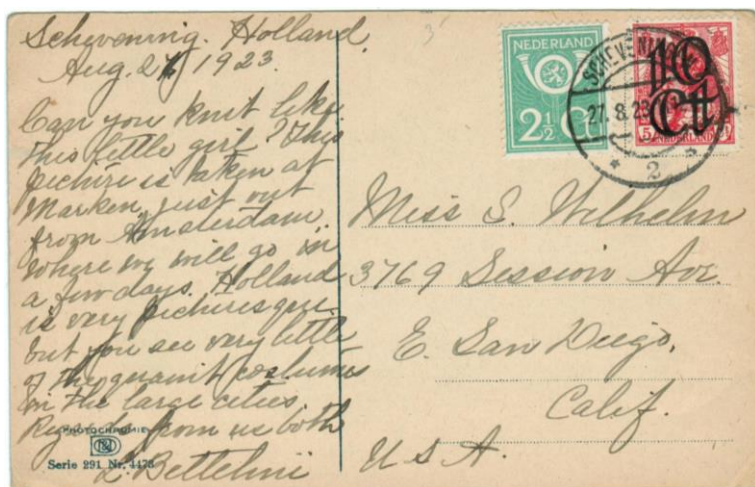 Schevening. Holland.
Aug. 27 1923.
Can you knit like
this little girl? This
picture is taken at
Marken, just out
from Amsterdam
where we will go in
a few days. Holland
is very picturesque
but you see very little
of the quaint costumes
in the large cities.
from us both
L. Bettelini
PHOTOCHROMIE
Serie 291 Nr. 4478
NEDERLAND
2½ Ct
SCHEVENINGEN
27. 8. 23
2
10
Ct
5
NEDERLAND
Miss S. Wilhelm
3769 Session Ave.
E. San Diego,
Calif.
U.S.A.